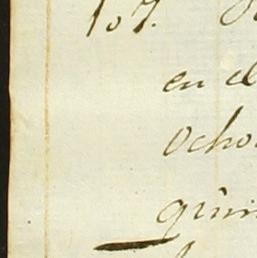 107.
en el
Ocho
quin